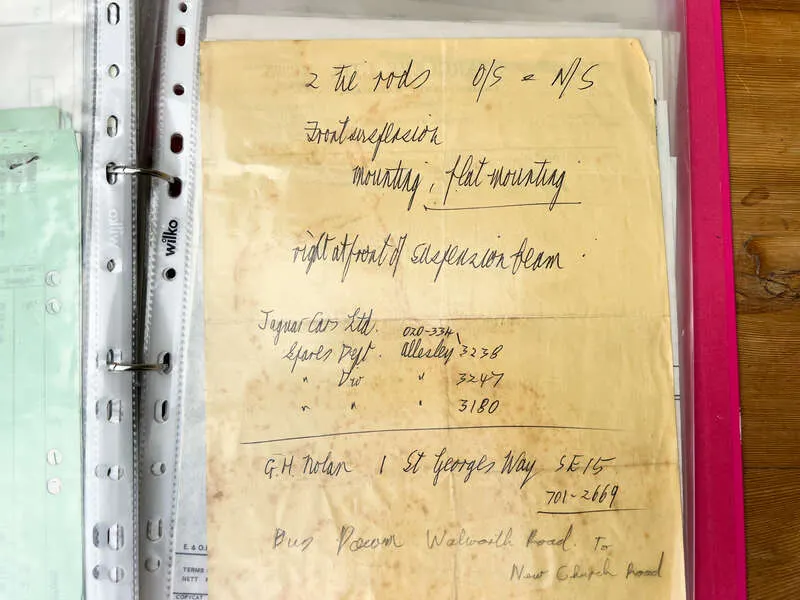 2 tie rods O/S & N/S
Front suspension
mounting, flat mounting
right at front of suspension beam
Jaguar Cars Ltd. 020-334
Spares Dept. Allesley 3238
" " 3247
" " " 3180
G.H. Nolan 1 St Georges Way SE15
701-2669
Bus Down Walworth Road. To
New Church Road
wilko
E. & O.
TERMS
NETT
COPYCAT